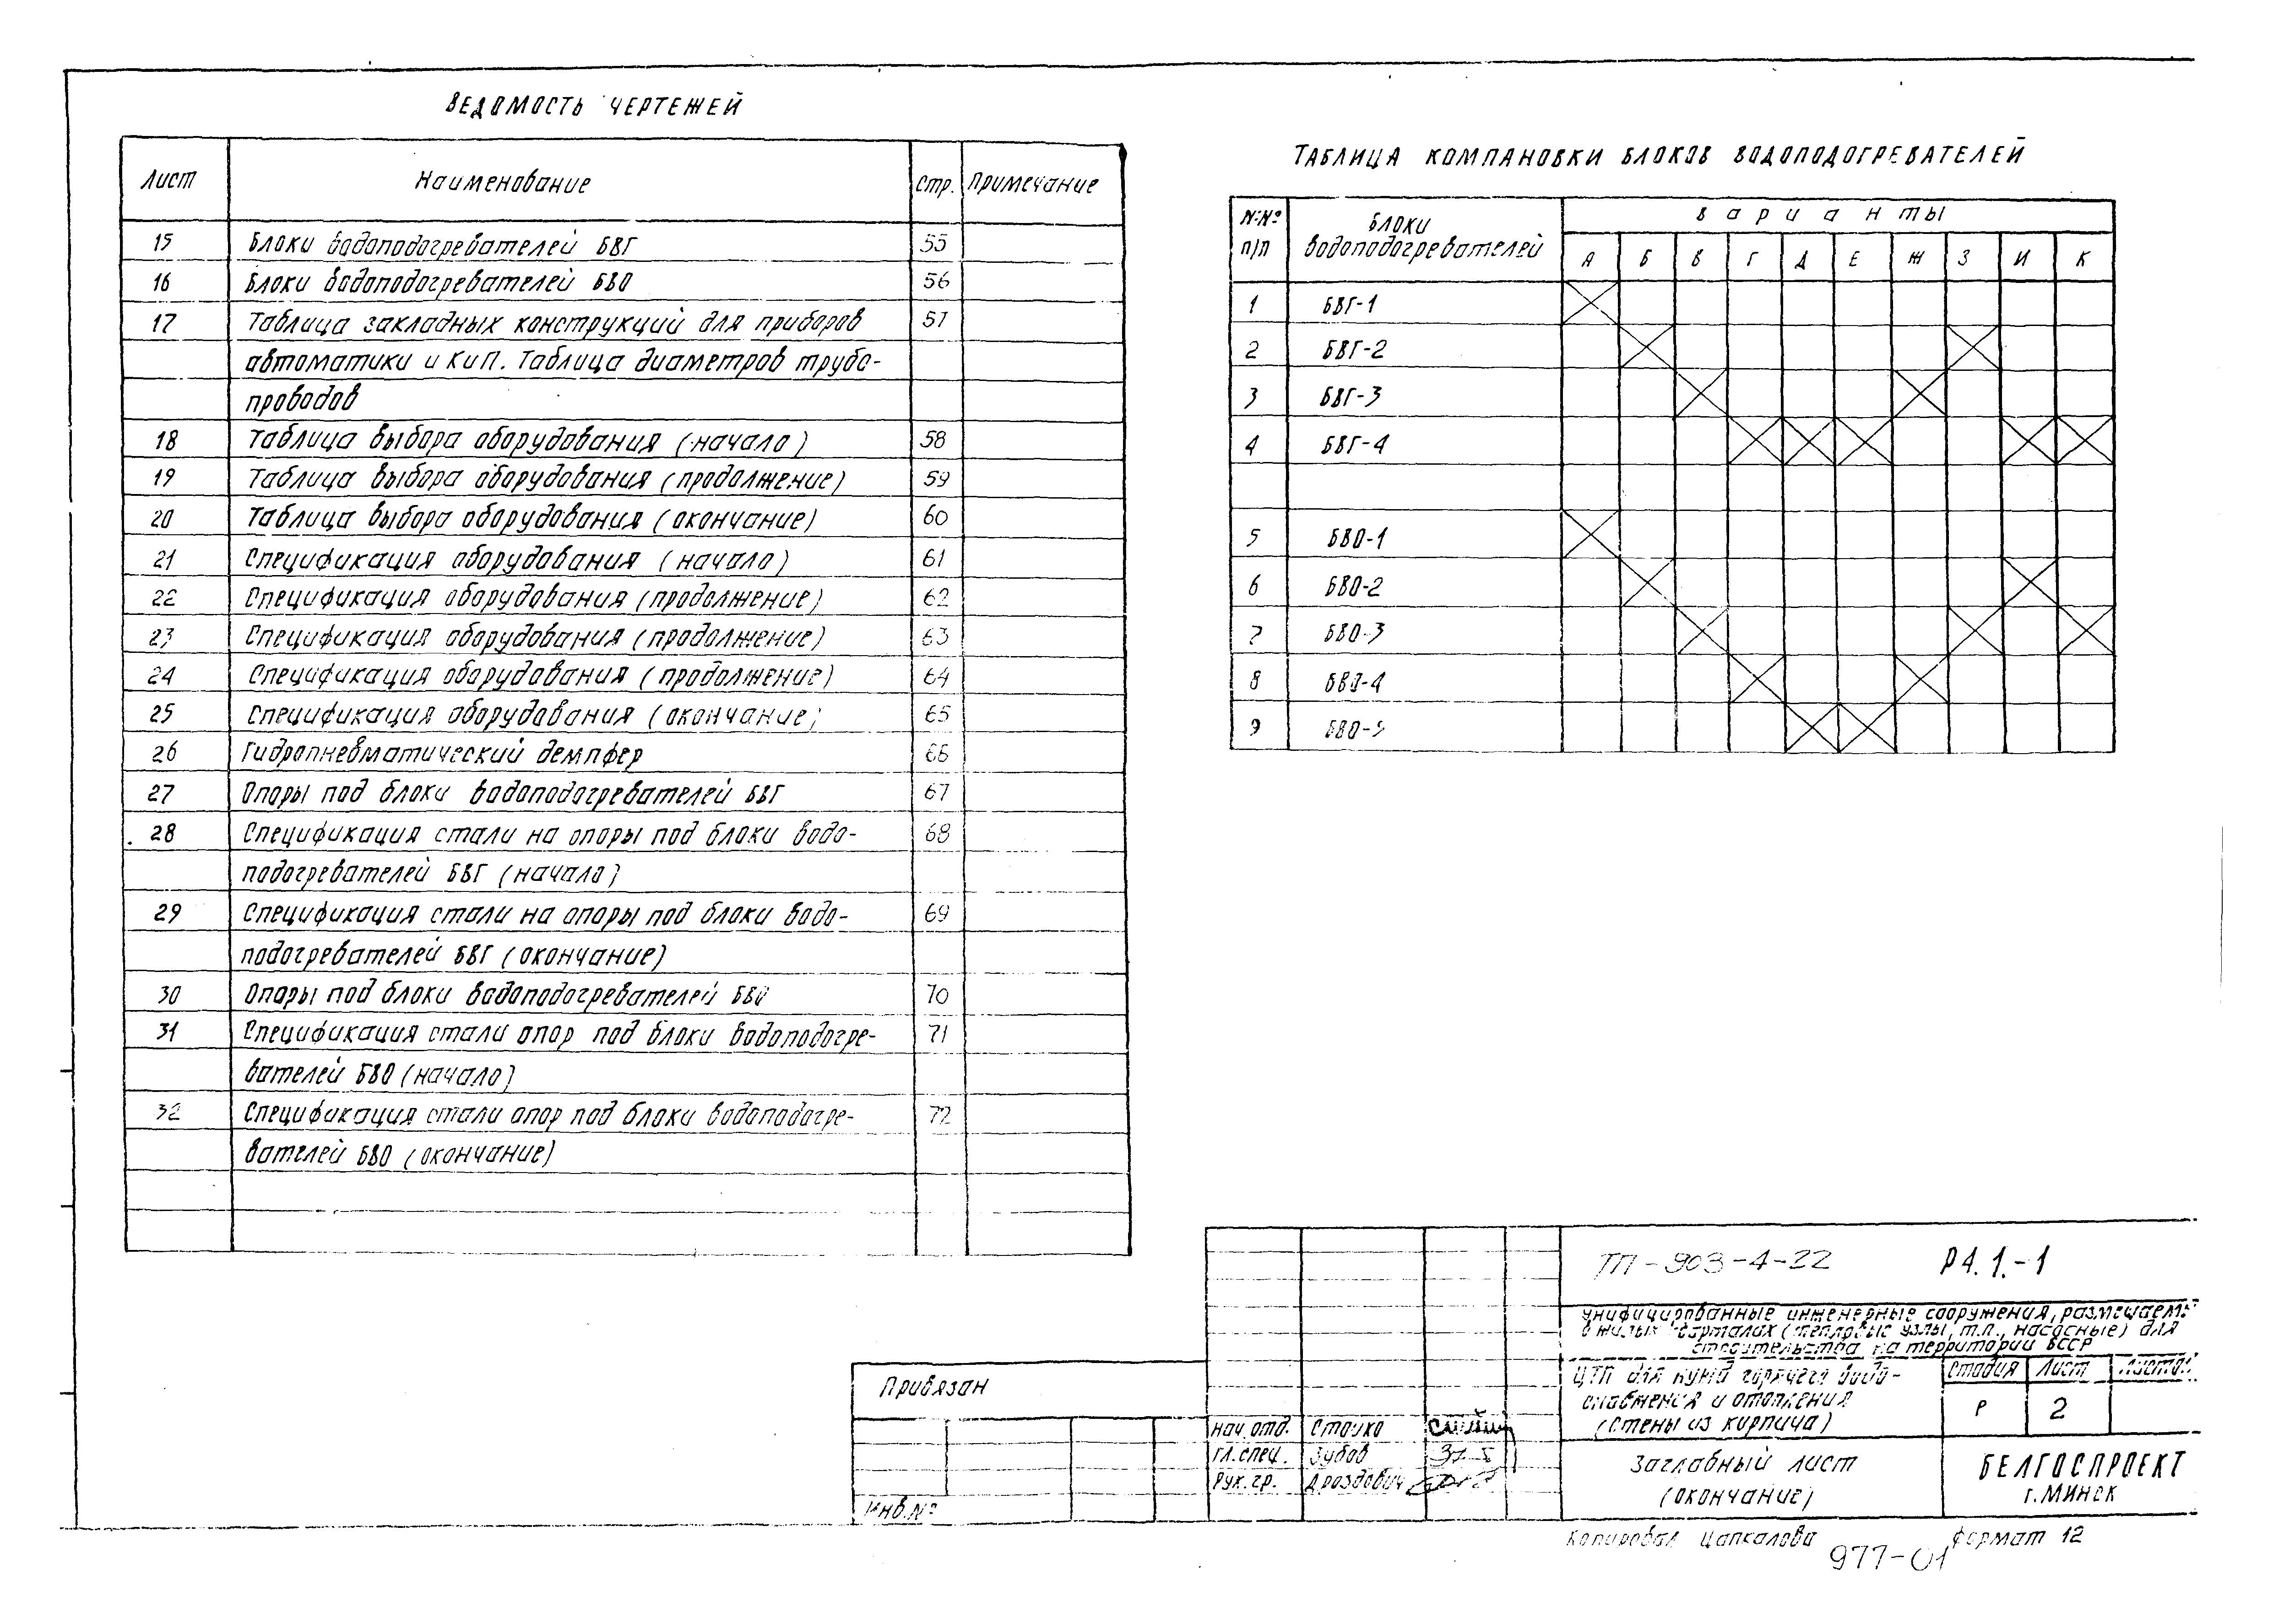 ВЕДОМОСТЬ ЧЕРТЕЖЕЙ
Лист Наименование Стр. Примечание
15 Блоки водоподогревателей БВГ 55
16 Блоки водоподогревателей БВО 56
17 Таблица закладных конструкций для приборов 57
автоматики и КиП. Таблица диаметров трубо-
проводов
18 Таблица выбора оборудования (начало) 58
19 Таблица выбора оборудования (продолжение) 59
20 Таблица выбора оборудования (окончание) 60
21 Спецификация оборудования (начало) 61
22 Спецификация оборудования (продолжение) 62
23 Спецификация оборудования (продолжение) 63
24 Спецификация оборудования (продолжение) 64
25 Спецификация оборудования (окончание) 65
26 Гидропневматический демпфер 66
27 Опоры под блоки водоподогревателей БВГ 67
28 Спецификация стали на опоры под блоки водо- 68
подогревателей БВГ (начало)
29 Спецификация стали на опоры под блоки водо- 69
подогревателей БВГ (окончание)
30 Опоры под блоки водоподогревателей БВО 70
31 Спецификация стали опор под блоки водоподогре- 71
вателей БВО (начало)
32 Спецификация стали опор под блоки водоподогре- 72
вателей БВО (окончание)
ТАБЛИЦА КОМПАНОВКИ БЛОКОВ ВОДОПОДОГРЕВАТЕЛЕЙ
№№ п/п Блоки водоподогревателей Варианты
А Б В Г Д Е Ж З И К
1 БВГ-1
2 БВГ-2
3 БВГ-3
4 БВГ-4
5 БВО-1
6 БВО-2
7 БВО-3
8 БВО-4
9 БВО-5
ТП-903-4-22 Р4.1.-1
Унифицированные инженерные сооружения, размещаемые
в жилых кварталах (тепловые узлы, т.п., насосные) для
строительства на территории БССР
ЦТП для нужд горячего водо-
снабжения и отопления
(стены из кирпича)
Стадия Лист Листов
Р 2
Привязан
Инв.№
Нач. отд. Стацко
Гл. спец. Зубов
Рук. гр. Дроздович
Заглавный лист
(окончание)
БЕЛГОСПРОЕКТ
г. МИНСК
Копировал Цапкалова Формат 12
977-01